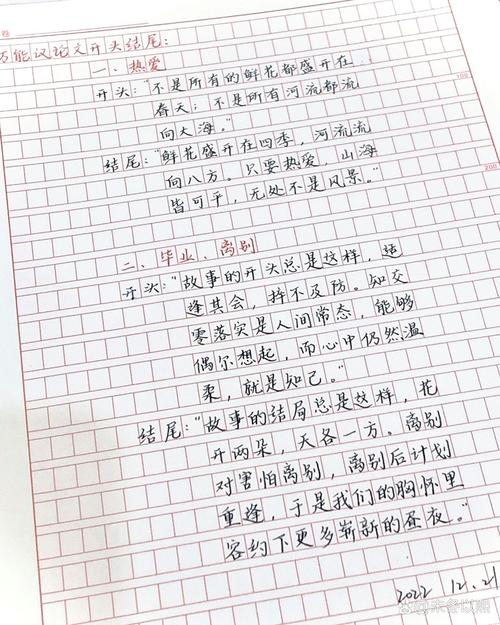 卷
万能议论文开头结尾:
一、热爱
开头:"不是所有的鲜花都盛开在
春天;不是所有河流都流
向大海。"
结尾:"鲜花盛开在四季,河流流
向八方。只要热爱,山海
皆可平,无处不是风景。"
100
200
二、毕业、离别
开头:"故事的开头总是这样,适
逢其会,猝不及防。知交
零落实是人间常态,能够
偶尔想起,而心中仍然温
柔,就是知己。"
结尾:"故事的结局总是这样,花
开两朵,天各一方。离别
对害怕离别,离别后计划
重逢,于是我们的胸怀里
容约下更多崭新的昼夜。"
2022 12.21